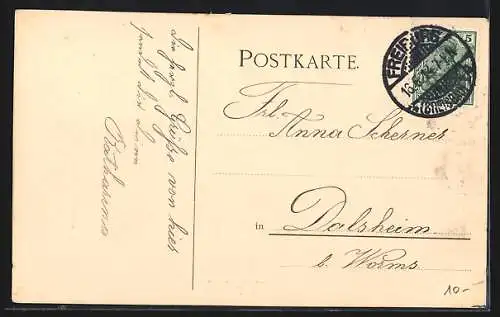 Die herzl. Grüße von hier
sendet dir deine
Katharina
POSTKARTE.
Frl.
Anna Scherner
in Dalsheim
b. Worms
FREIBURG
16
(BREISGAU)
5
10.-